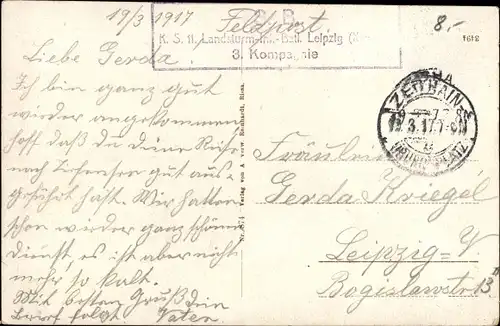 19/3 1917
Feldpost
8.-
1612
S. B.
K. S. II. Landsturm-Inf.-Batl. Leipzig
3. Kompagnie
Liebe Gerda.
Ich bin ganz gut
wieder angekommen
hoff daß du deine Reise
nach Zschernen gut aus-
geführt hast. Wir hatten
schon wieder ganz schönen
Dienst es ist aber nicht
mehr so kalt.
Mit besten Gruß Dein
Brief folgt Vater
Verlag von A verw. Reinhardt, Riesa.
ZEITHAIN
19.3.17. 7-8N
ÜBUNGSPLATZ
Fräulein
Gerda Kriegel
Leipzig-V.
Bogislawstr 13 II